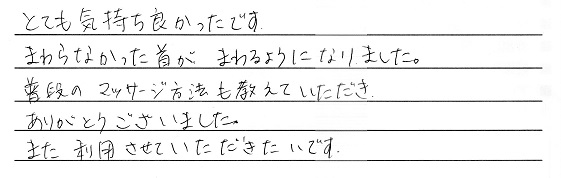 とても気持ち良かったです.
まわらなかった首が まわるようになりました。
普段の マッサージ方法も教えていただき.
ありがとうございました。
また 利用させていただきたいです.